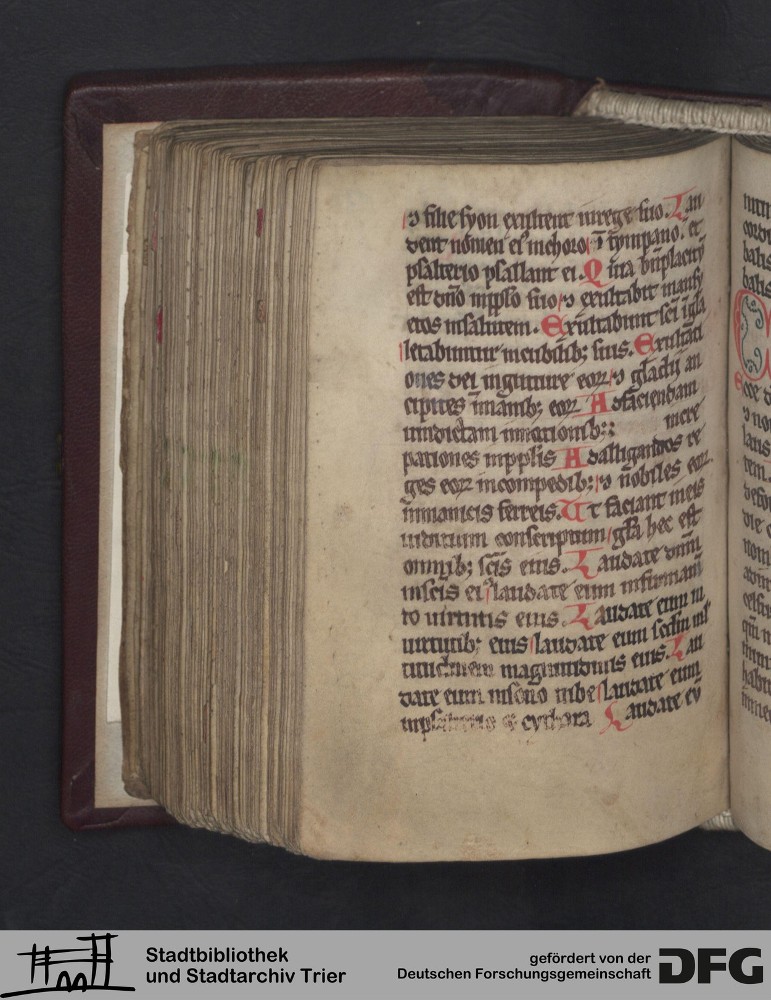 ⁊ filie syon exultent in rege suo. Lau
dent nomen eiꝰ in choro / ī tympano. et
psalterio psallant ei. Quia bn̄placitū
est dn̄o in pp̄lo suo / ⁊ exaltabit mansu
etos in salutem. Exultabunt sc̄i in gl̄a
letabuntur in cubilibꝫ suis. Exultati
ones dei in gutture eoꝝ / ⁊ gladii an
cipites in manibꝫ eoꝝ Ad faciendam
uindictam in nationibꝫ: incre
pationes in pp̄lis Ad alligandos re
ges eoꝝ in compedibꝫ: / ⁊ nobiles eoꝝ
in manicis ferreis. Ut faciant in eis
iudicium conscriptum / gl̄a hec est
omnibꝫ sc̄is eius. Laudate dn̄m
in sc̄is eiꝰ laudate eum in firmam̄
to uirtutis eius. Laudate eum in
uirtutibꝫ eius / laudate eum sec̄dm ml̄
titudinem magnitudinis eius. Lau
date eum in sono tube / laudate eum
in psalterio et cythara Laudate eū
Stadtbibliothek
und Stadtarchiv Trier
gefördert von der
Deutschen Forschungsgemeinschaft
DFG